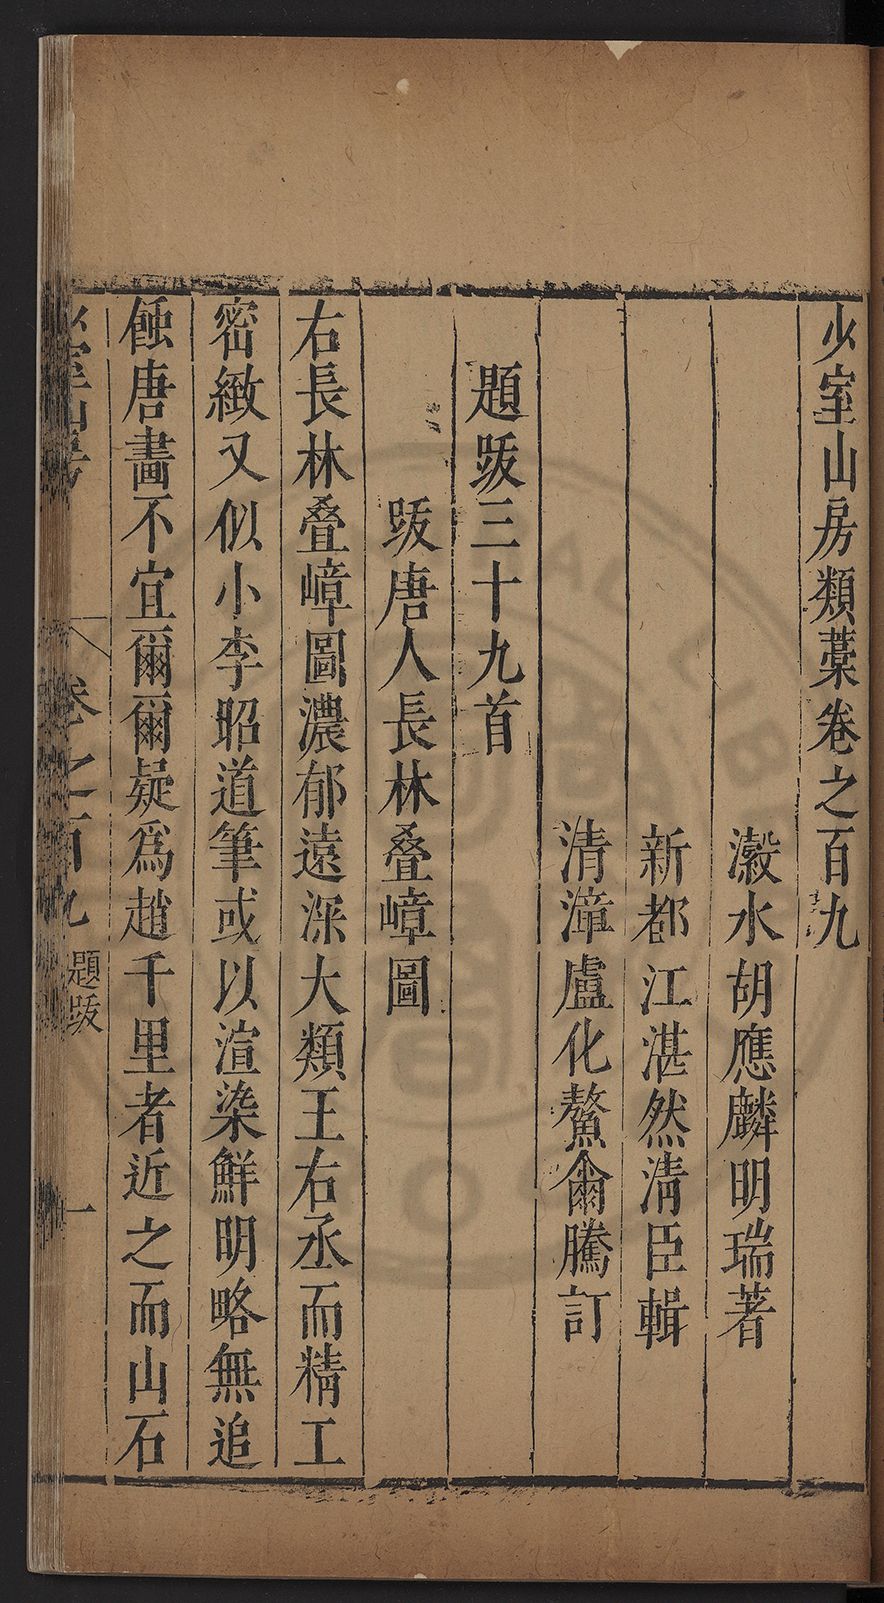 少室山房類藁卷之百九
瀫水胡應麟明瑞著
新都江湛然清臣輯
清漳盧化鰲爾騰訂
題跋三十九首
跋唐人長林叠嶂圖
右長林叠嶂圖濃郁遠深大類王右丞而精工
密緻又似小李昭道筆或以渲染鮮明略無追
蝕唐畫不宜爾爾疑爲趙千里者近之而山石
少室山房
卷之百九
題跋
一